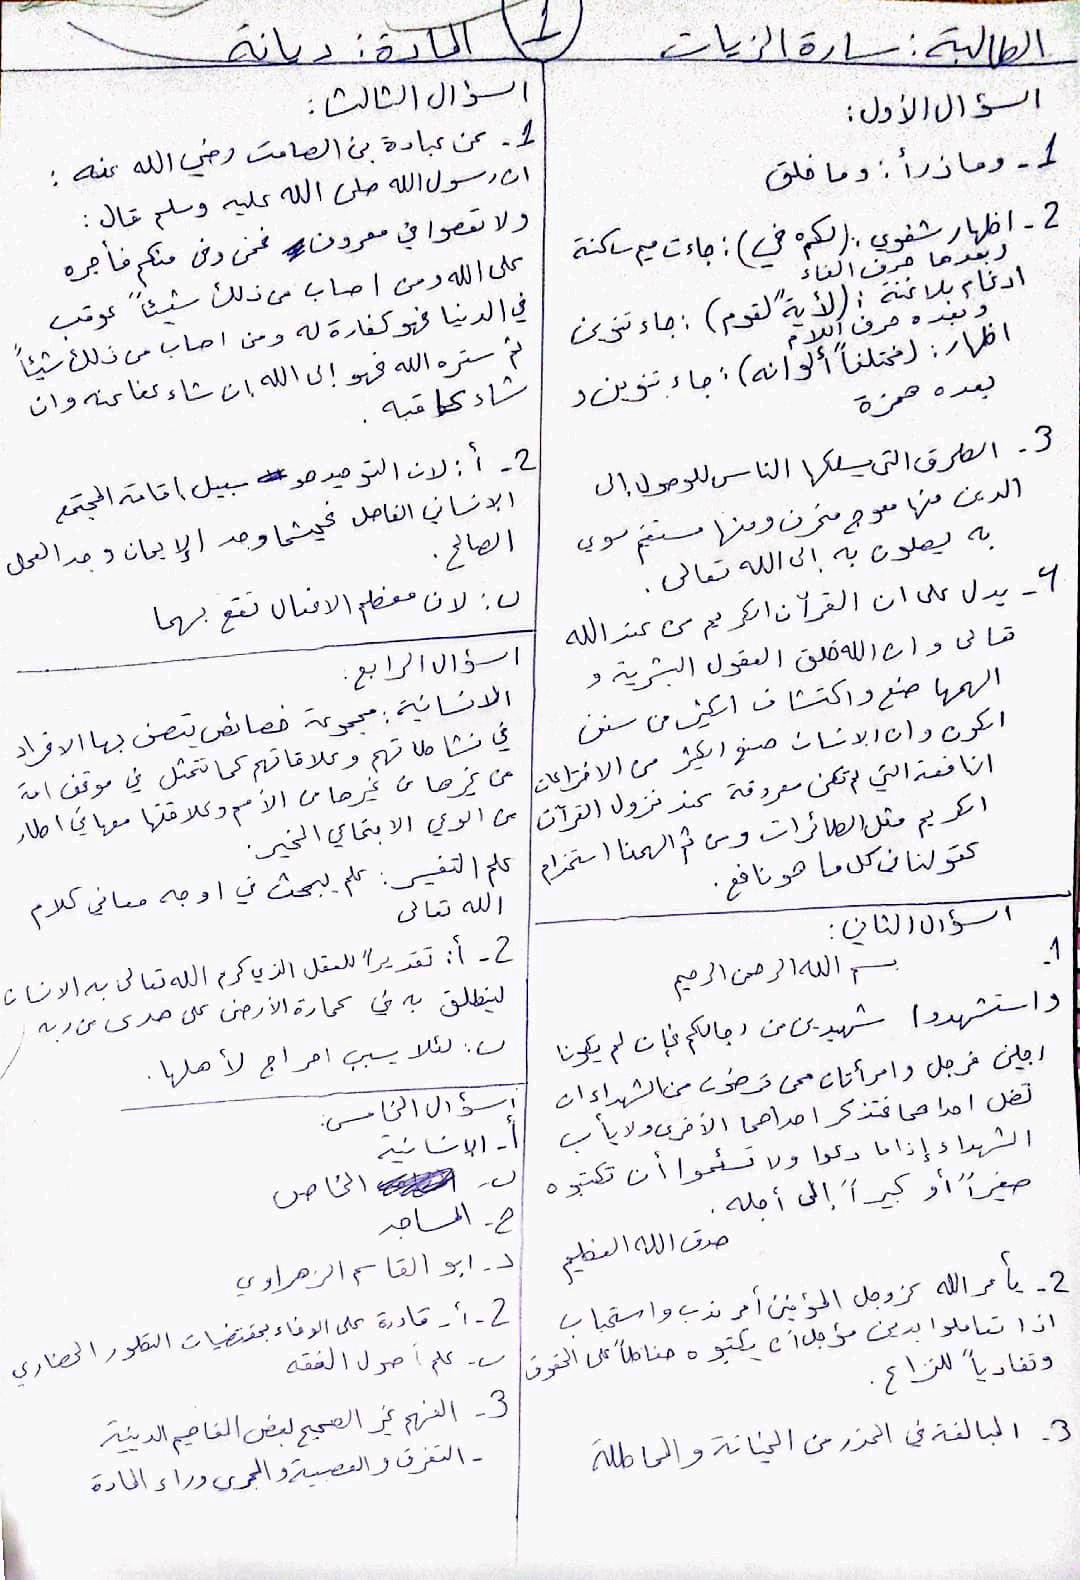 الطالبة: سارة الزيات
1
المادة: ديانة
السؤال الأول:
1- وما ذرأ: وما خلق
2- اظهار شفوي: (لكم في): جاءت ميم ساكنة
وبعدها حرف الفاء
ادغام بلا غنة: (لأيةً لقوم): جاء تنوين
وبعده حرف اللام
اظهار: (مختلفاً ألوانه): جاء تنوين و
بعده همزة
3- الطرق التي يسلكها الناس للوصول إلى
الدين منها معوج منحرف ومنها مستقيم سوي
به يصلون به إلى الله تعالى.
4- يدل على ان القرآن الكريم من عند الله
تعالى وان الله خلق العقول البشرية و
الهمها صنع واكتشاف الكثير من سنن
الكون وان الانسان صنع الكثير من الاختراعات
النافعة التي لم تكن معروفة عند نزول القرآن
الكريم مثل الطائرات ومن ثم الهمنا استخدام
عقولنا في كل ما هو نافع.
السؤال الثاني:
1-
بسم الله الرحمن الرحيم
واستشهدوا شهيدين من رجالكم فإن لم يكونا
رجلين فرجل وامرأتان ممن ترضون من الشهداء ان
تضل احداهما فتذكر احداهما الأخرى ولا يأب
الشهداء إذا ما دعوا ولا تسئموا أن تكتبوه
صغيراً أو كبيراً إلى أجله.
صدق الله العظيم
2- يأمر الله عزوجل المؤمنين أمر ندب واستحباب
اذا تعاملوا بدين مؤجل أن يكتبوه حفاظاً على الحقوق
وتفادياً للنزاع.
3- المبالغة في الحذر من الخيانة والمماطلة
السؤال الثالث:
1- عن عبادة بن الصامت رضي الله عنه:
ان رسول الله صلى الله عليه وسلم قال:
ولا تعصوا في معروف فمن وفى منكم فأجره
على الله ومن اصاب من ذلك شيئاً عوقب
في الدنيا فهو كفارة له ومن اصاب من ذلك شيئاً
ثم ستره الله فهو إلى الله ان شاء عفا عنه وان
شاء عاقبه.
2- أ: لان التوحيد هو سبيل اقامة المجتمع
الانساني الفاضل فحيثما وجد الإيمان وجد العمل
الصالح.
ب: لان معظم الافعال تقع بهما
السؤال الرابع:
الانسانية: مجموعة خصائص يتصف بها الافراد
في نشاطاتهم وعلاقاتهم كما تتمثل في موقف امة
من غيرها من الأمم وعلاقتها معها في اطار
من الوعي الاجتماعي الخير.
علم التفسير: علم يبحث في اوجه معاني كلام
الله تعالى
2- أ: تقديراً للعقل الذي كرم الله تعالى به الانسان
لينطلق به في عمارة الأرض على هدى من ربه
ب: لئلا يسبب احراج لأهلها.
السؤال الخامس:
أ- الانسانية
ب- الخاص
ج- المساجد
د- ابو القاسم الزهراوي
2- أ- قادرة على الوفاء بمقتضيات التطور الحضاري
ب- علم أصول الفقه
3- الفهم غير الصحيح لبعض المفاهيم الدينية
- التفرق والعصبية والجري وراء المادة